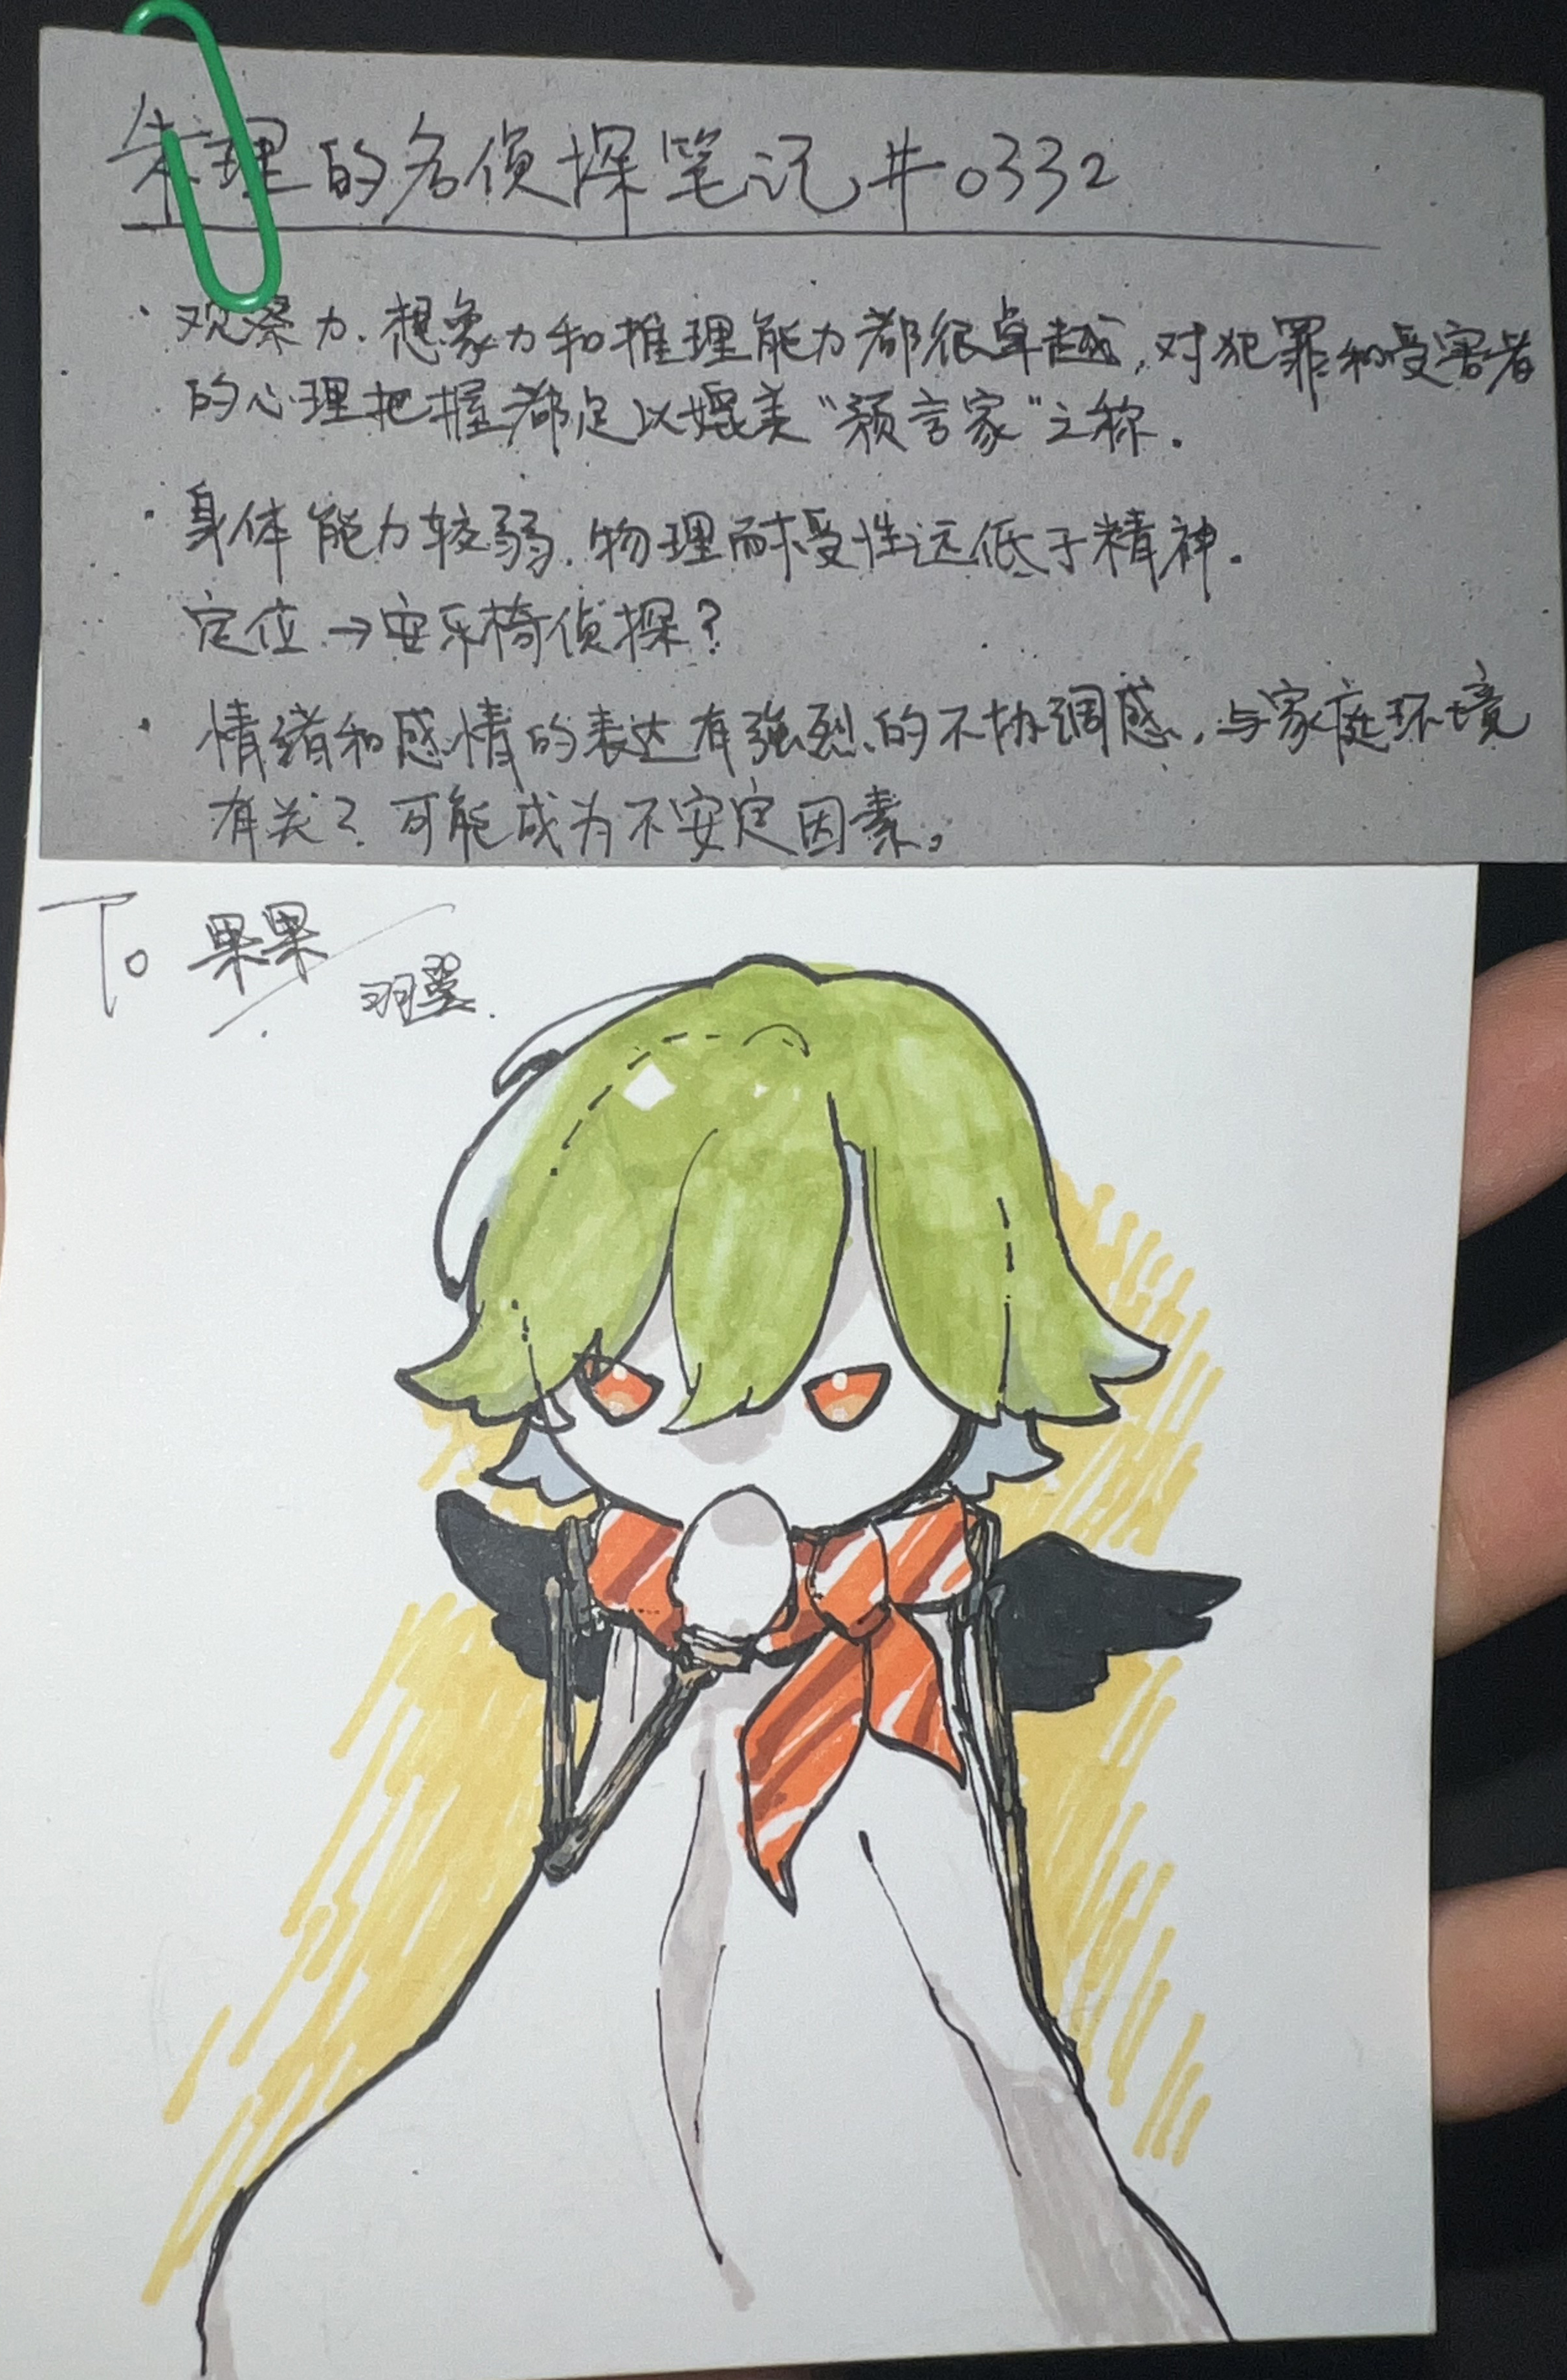 朱理的名侦探笔记 #0332
· 观察力、想象力和推理能力都很卓越，对犯罪和受害者
的心理把握都足以媲美“预言家”之称。
· 身体能力较弱，物理耐受性远低于精神。
定位→安乐椅侦探？
· 情绪和感情的表达有强烈的不协调感，与家庭环境
有关？可能成为不安定因素。
To 果果